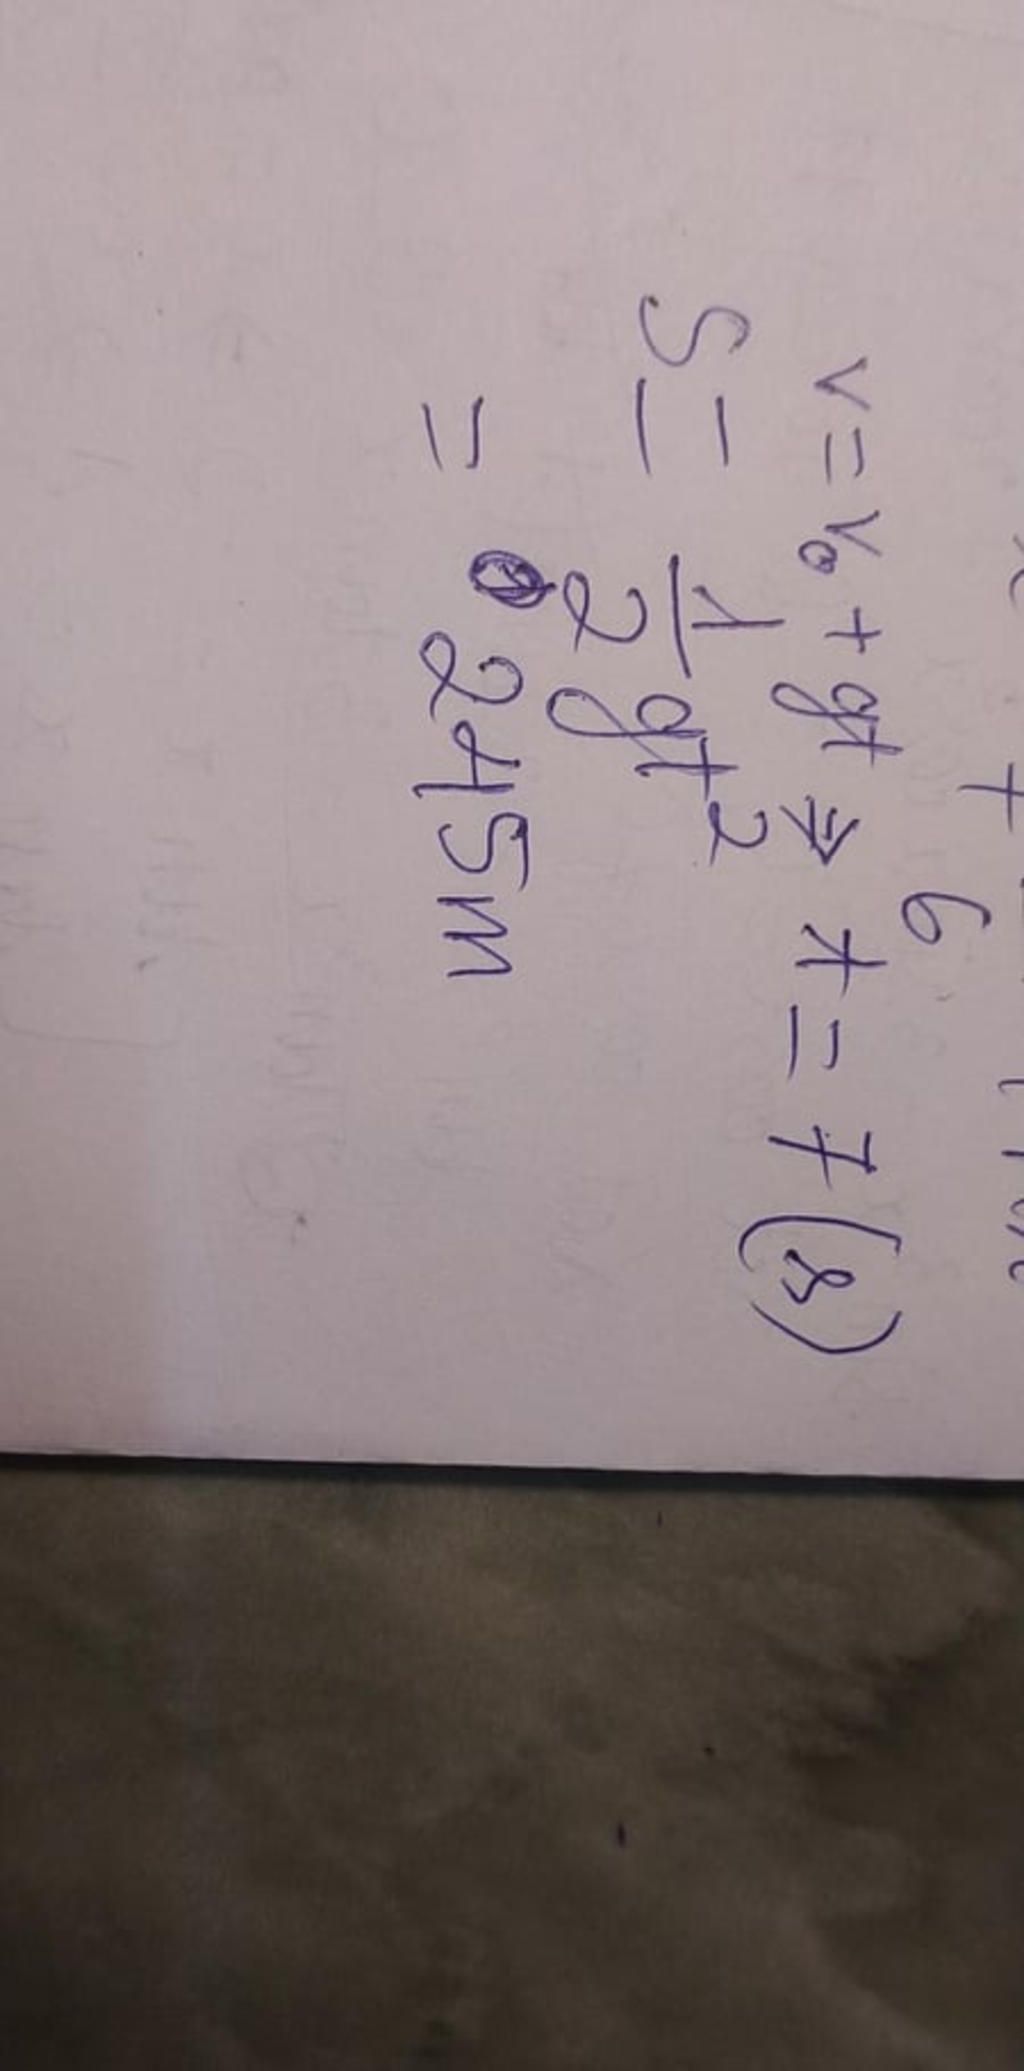 6
v = v₀ + gt ⇒ t = 7 (s)
S = 1/2 gt²
= 245m